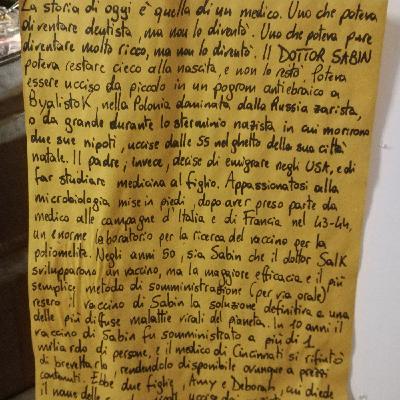 La storia di oggi è quella di un medico. Uno che poteva
diventare dentista, ma non lo diventò. Uno che poteva pure
diventare molto ricco, ma non lo diventò. Il DOTTOR SABIN
poteva restare cieco alla nascita, e non lo restò. Poteva
essere ucciso da piccolo in un pogrom antiebraico a
ByalistoK, nella Polonia dominata dalla Russia zarista,
o da grande durante lo sterminio nazista in cui morirono
due sue nipoti, uccise dalle SS nel ghetto della sua città
natale. Il padre, invece, decise di emigrare negli USA, e di
far studiare medicina al figlio. Appassionatosi alla
microbiologia, mise in piedi, dopo aver preso parte da
medico alle campagne d'Italia e di Francia nel 43-44,
un enorme laboratorio per la ricerca del vaccino per la
poliomelite. Negli anni 50, sia Sabin che il dottor Salk
svilupparono un vaccino, ma la maggiore efficacia e il più
semplice metodo di somministrazione (per via orale)
resero il vaccino di Sabin la soluzione definitiva a una
delle più diffuse malattie virali del pianeta. In 10 anni il
vaccino di Sabin fu somministrato a più di 1
miliardo di persone, e il medico di Cincinnati si rifiutò
di brevettarlo, rendendolo disponibile ovunque a prezzi
contenuti. Ebbe due figlie, Amy e Deborah, cui diede
il nome delle